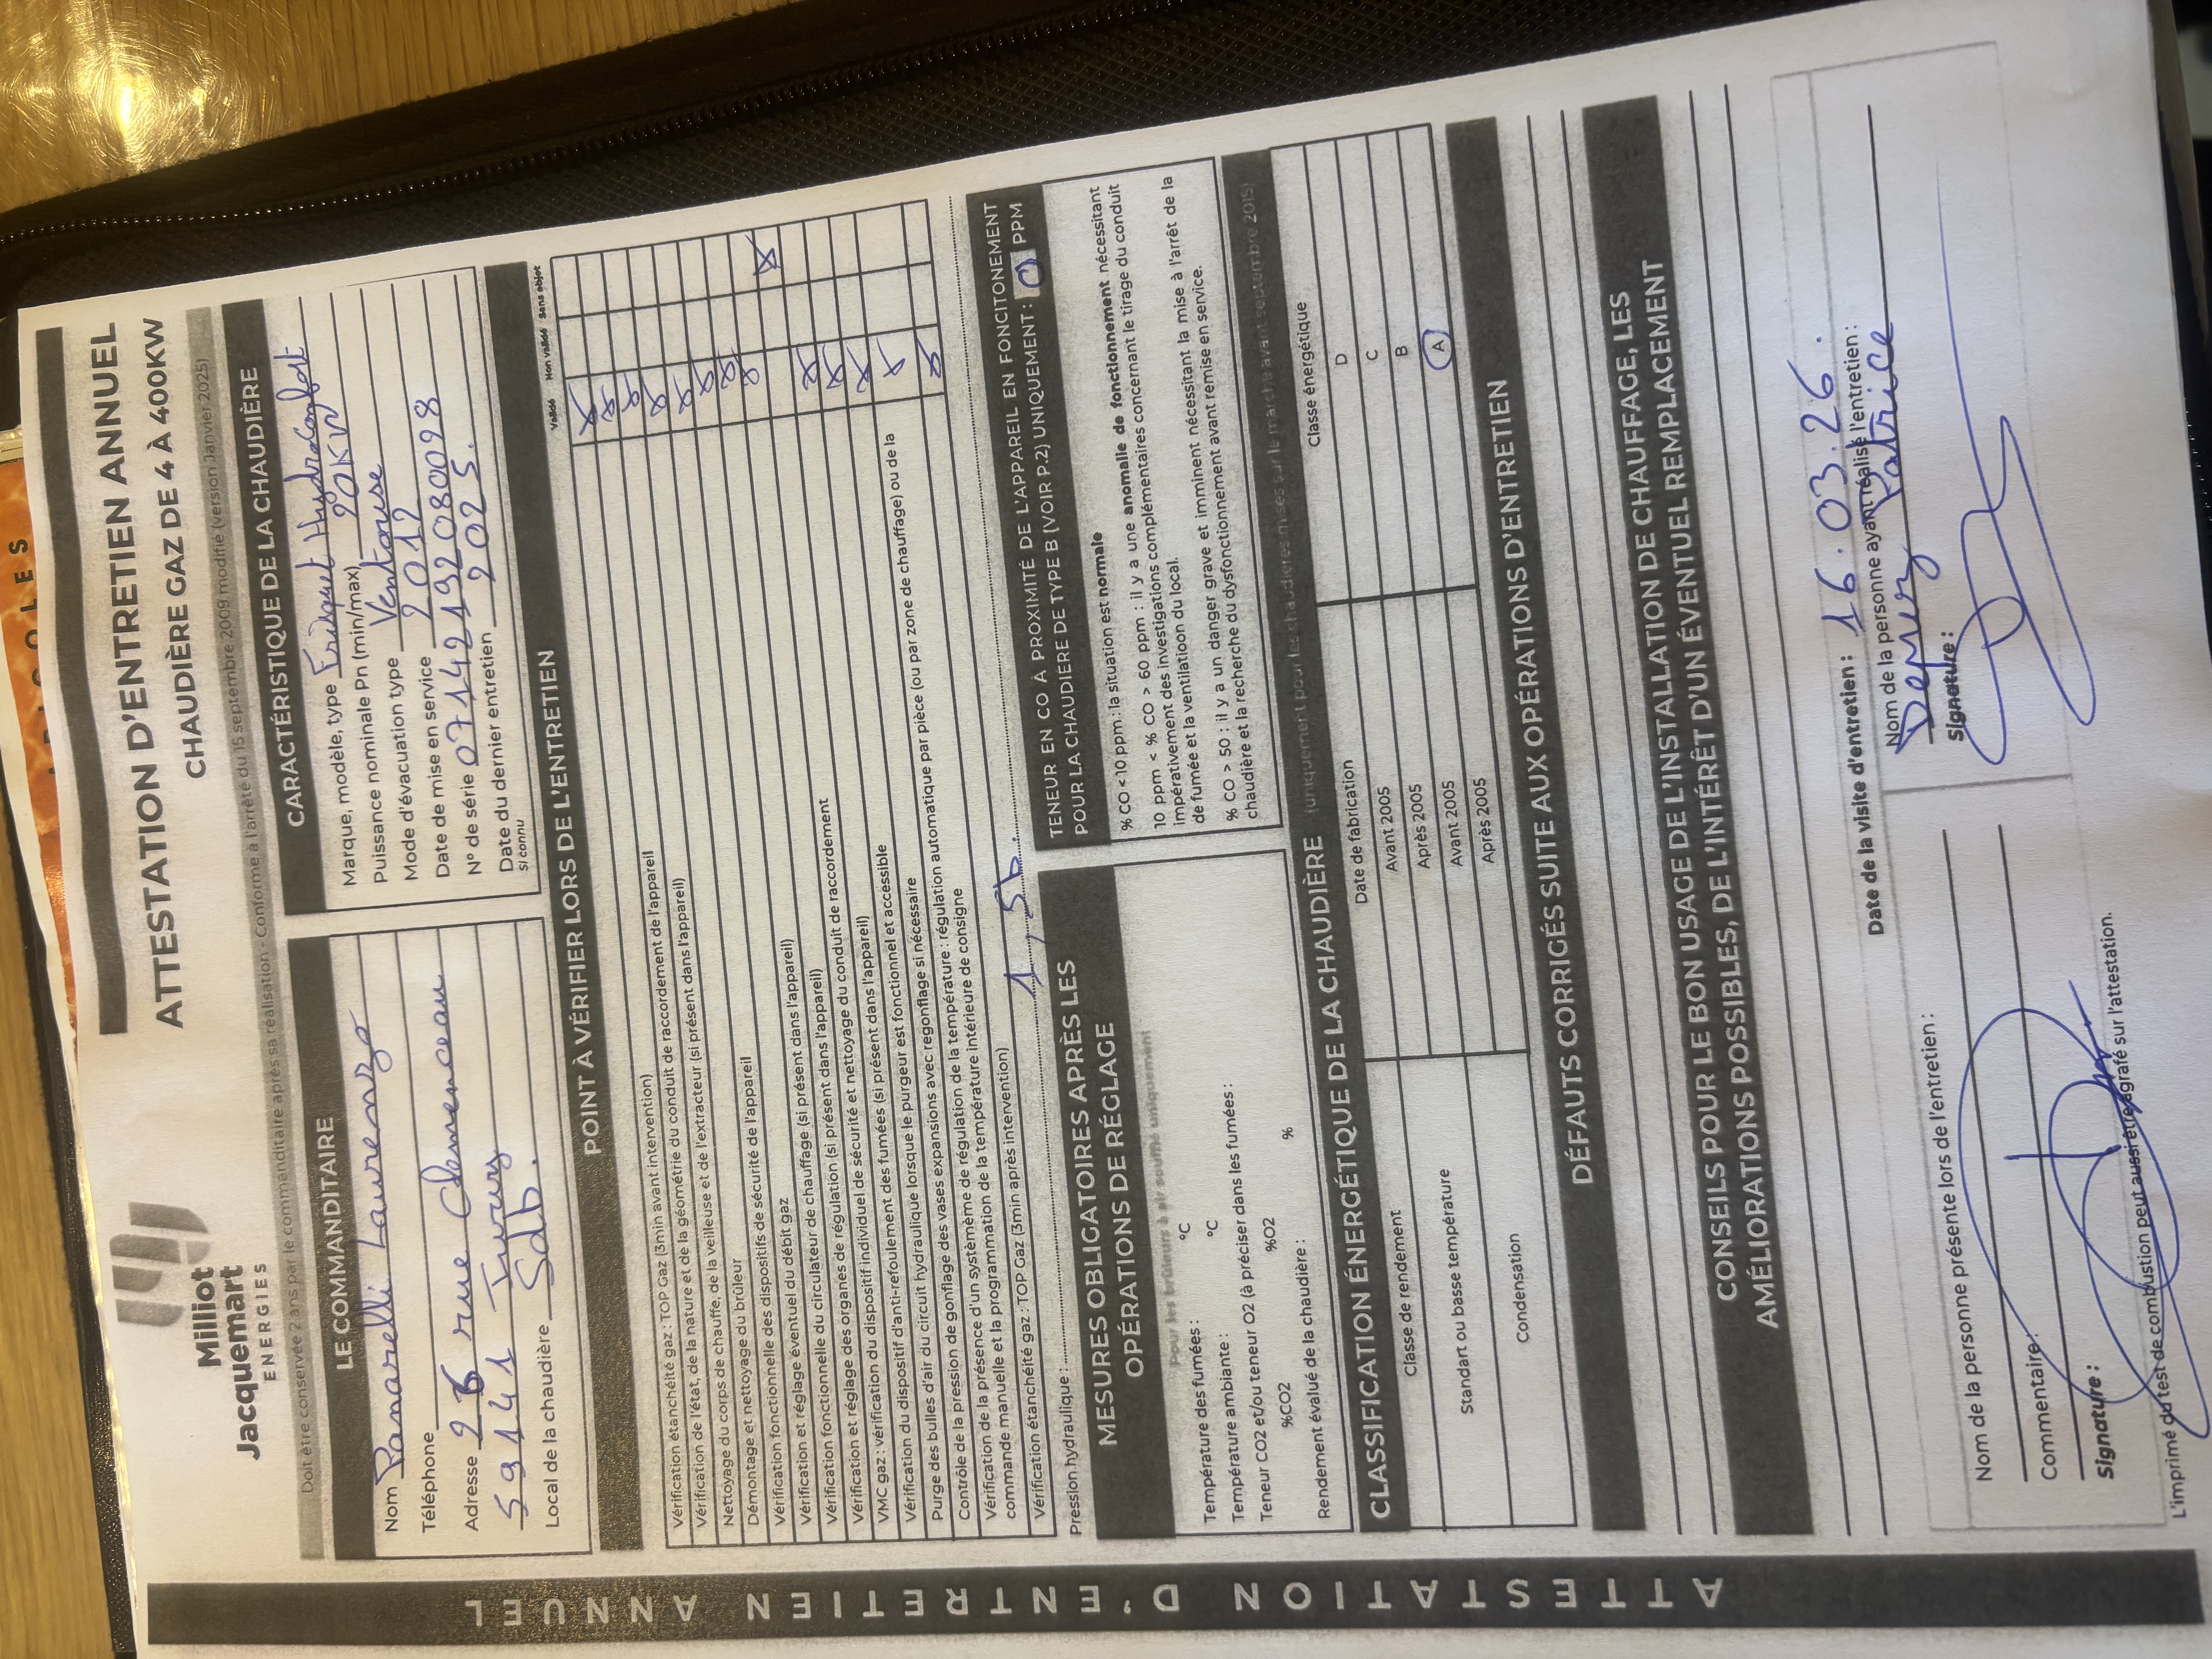 Milliot
Jacquemart
ENERGIES
ATTESTATION D'ENTRETIEN ANNUEL
CHAUDIÈRE GAZ DE 4 À 400KW
Doit être conservée 2 ans par le commanditaire après sa réalisation - Conforme à l'arrêté du 15 septembre 2009 modifié (version Janvier 2025)
LE COMMANDITAIRE
Nom Panarelli Laurenzo
Téléphone
Adresse 26 rue Clemenceau
59141 Iwuy
Local de la chaudière Sdb.
CARACTÉRISTIQUE DE LA CHAUDIÈRE
Marque, modèle, type Frisquet Hydraconfort
Puissance nominale Pn (min/max) 20KW
Mode d'évacuation type Ventouse
Date de mise en service 2012
N° de série 07142192080098
Date du dernier entretien 2025.
si connu
POINT À VÉRIFIER LORS DE L'ENTRETIEN
Validé Non validé Sans objet
Vérification étanchéité gaz : TOP Gaz (3min avant intervention)
Vérification de l'état, de la nature et de la géométrie du conduit de raccordement de l'appareil
Nettoyage du corps de chauffe, de la veilleuse et de l'extracteur (si présent dans l'appareil)
Démontage et nettoyage du brûleur
Vérification fonctionnelle des dispositifs de sécurité de l'appareil
Vérification et réglage éventuel du débit gaz
Vérification fonctionnelle du circulateur de chauffage (si présent dans l'appareil)
Vérification et réglage des organes de régulation (si présent dans l'appareil)
VMC gaz : vérification du dispositif individuel de sécurité et nettoyage du conduit de raccordement
Vérification du dispositif d'anti-refoulement des fumées (si présent dans l'appareil)
Purge des bulles d'air du circuit hydraulique lorsque le purgeur est fonctionnel et accessible
Contrôle de la pression de gonflage des vases expansions avec regonflage si nécessaire
Vérification de la présence d'un systèmème de régulation de la température : régulation automatique par pièce (ou par zone de chauffage) ou de la
commande manuelle et la programmation de la température intérieure de consigne
Vérification étanchéité gaz : TOP Gaz (3min après intervention)
Pression hydraulique : 1,5b.
MESURES OBLIGATOIRES APRÈS LES
OPÉRATIONS DE RÉGLAGE
Pour les brûleurs à air soufflé uniquement
Température des fumées : °C
Température ambiante : °C
Teneur CO2 et/ou teneur O2 (à préciser dans les fumées :
%CO2 %O2
Rendement évalué de la chaudière : %
TENEUR EN CO À PROXIMITÉ DE L'APPAREIL EN FONCITONEMENT
POUR LA CHAUDIÈRE DE TYPE B (VOIR P.2) UNIQUEMENT : 0 PPM
% CO <10 ppm : la situation est normale
10 ppm < % CO > 60 ppm : il y a une anomalie de fonctionnement nécessitant
impérativement des investigations complémentaires concernant le tirage du conduit
de fumée et la ventilation du local.
% CO > 50 : il y a un danger grave et imminent nécessitant la mise à l'arrêt de la
chaudière et la recherche du dysfonctionnement avant remise en service.
CLASSIFICATION ÉNERGÉTIQUE DE LA CHAUDIÈRE (uniquement pour les chaudières mises sur le marché avant septembre 2015)
Classe de rendement Date de fabrication Classe énergétique
Standart ou basse température Avant 2005 D
Après 2005 C
Condensation Avant 2005 B
Après 2005 A
DÉFAUTS CORRIGÉS SUITE AUX OPÉRATIONS D'ENTRETIEN
CONSEILS POUR LE BON USAGE DE L'INSTALLATION DE CHAUFFAGE, LES
AMÉLIORATIONS POSSIBLES, DE L'INTÉRÊT D'UN ÉVENTUEL REMPLACEMENT
Date de la visite d'entretien : 16.03.26.
Nom de la personne présente lors de l'entretien :
Commentaire :
Signature :
Nom de la personne ayant réalisé l'entretien :
Patrice
Signature :
L'imprimé du test de combustion peut aussi être agrafé sur l'attestation.
ATTESTATION D'ENTRETIEN ANNUEL